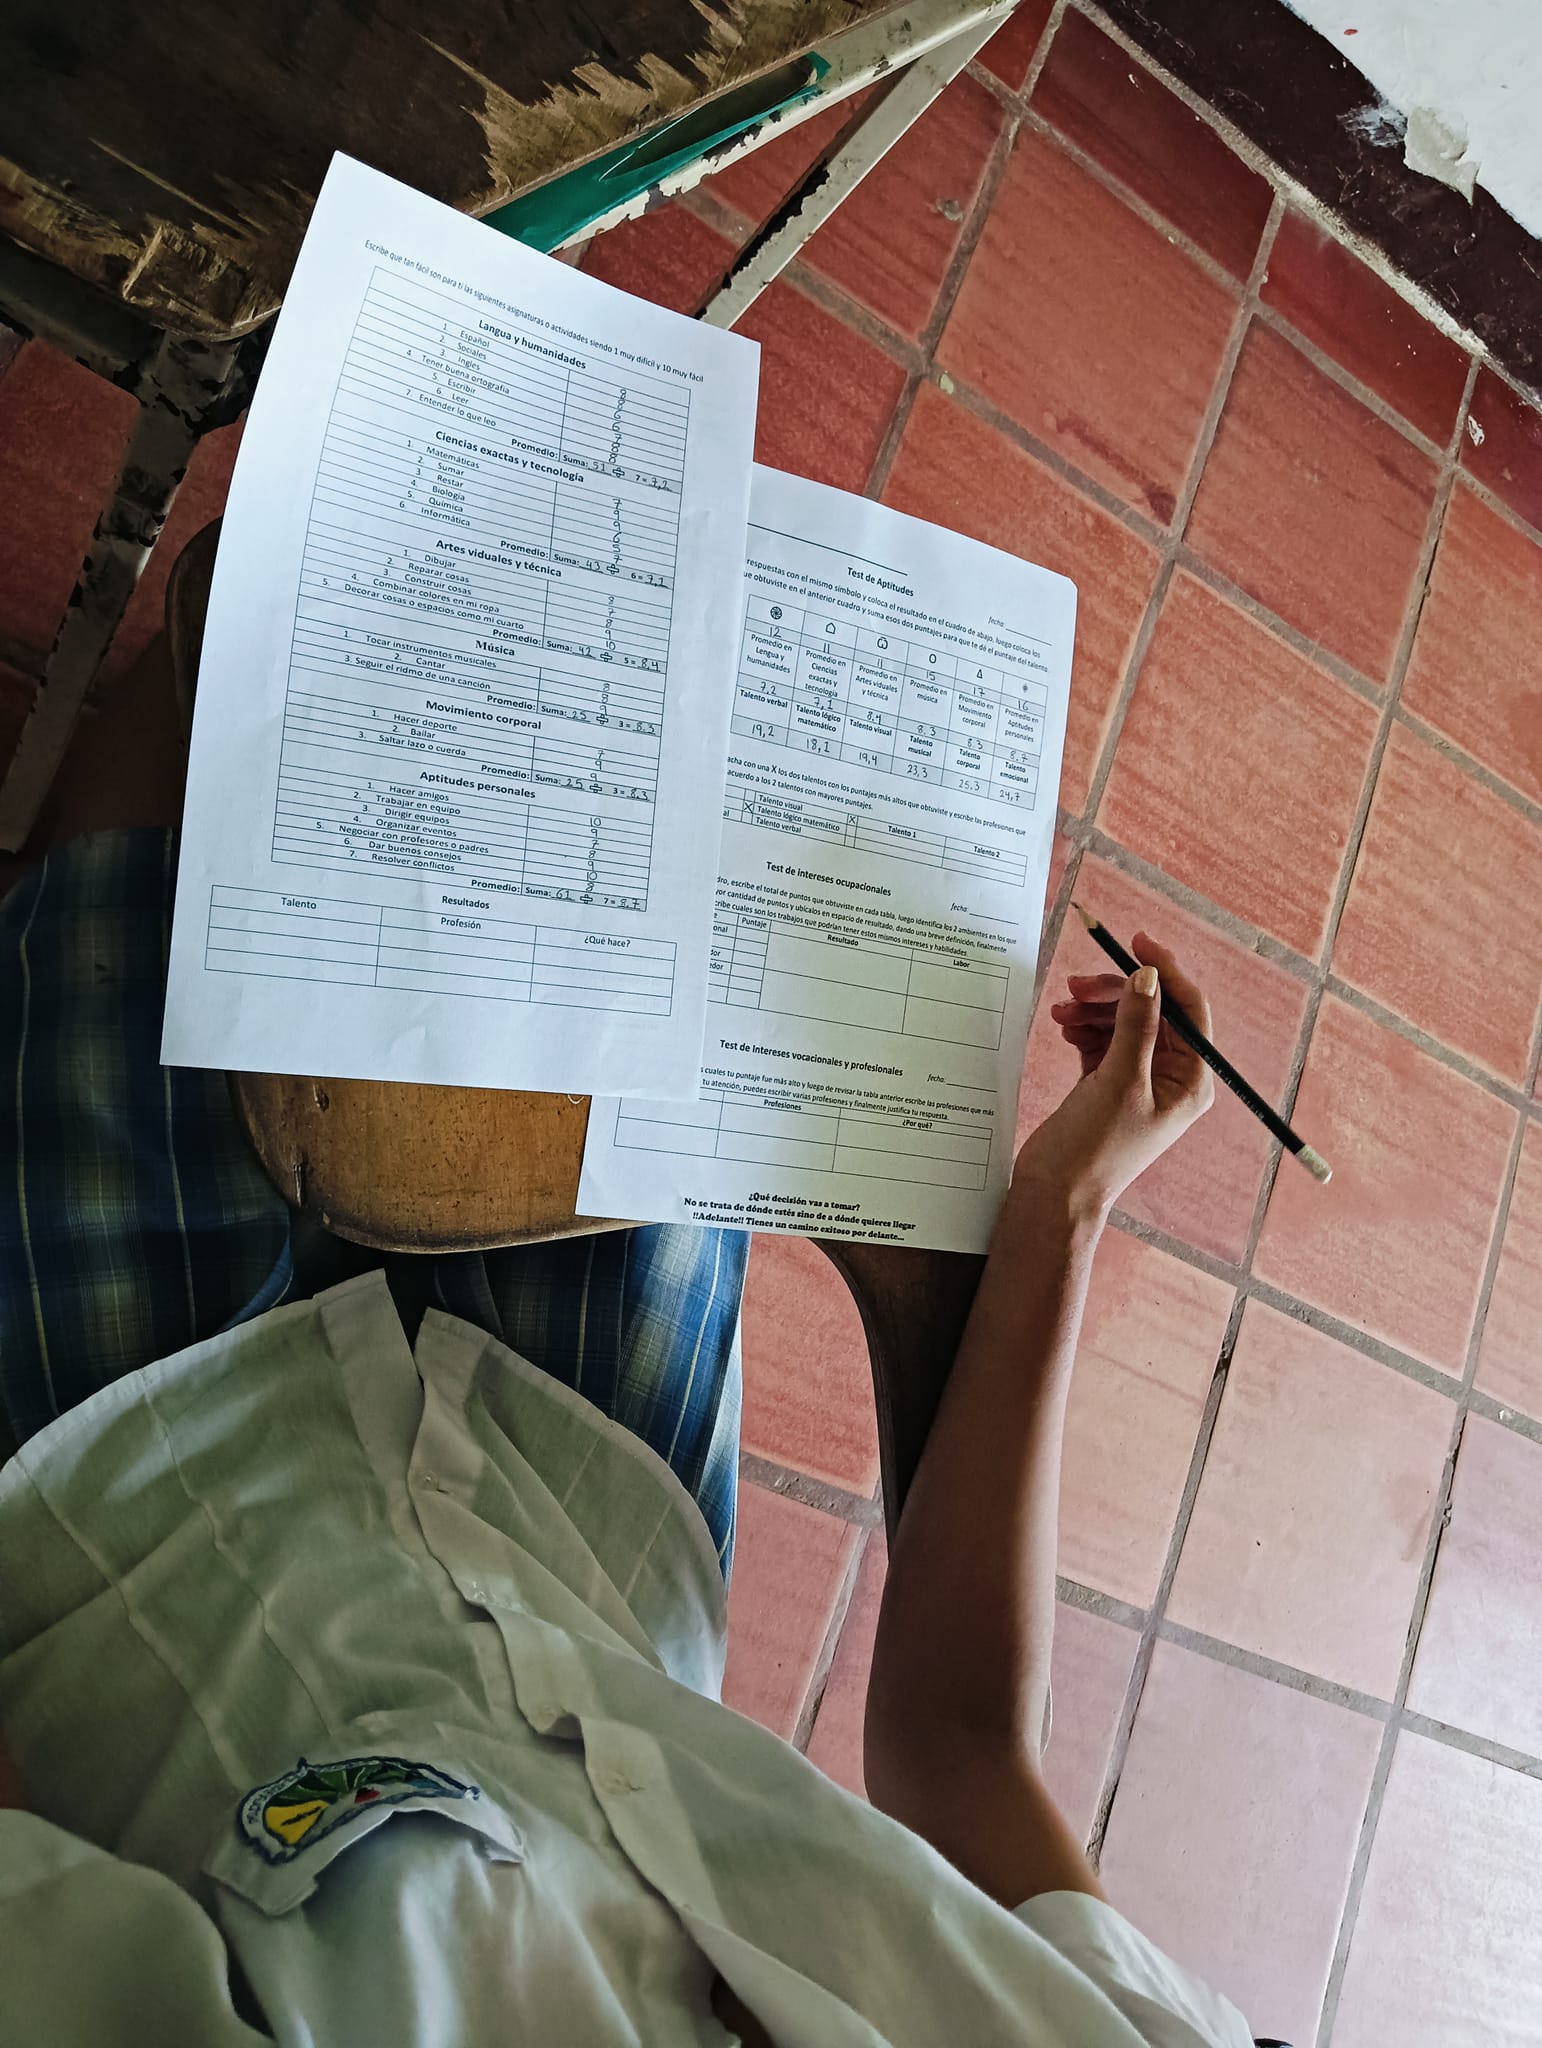 Escribe que tan fácil son para ti las siguientes asignaturas o actividades siendo 1 muy difícil y 10 muy fácil
Langua y humanidades
1. Español 8
2. Sociales 8
3. Ingles 6
4. Tener buena ortografía 6
5. Escribir 7
6. Leer 8
7. Entender lo que leo 8
Promedio: Suma: 51 ÷ 7 = 7,2
Ciencias exactas y tecnología
1. Matemáticas 7
2. Sumar 9
3. Restar 9
4. Biología 6
5. Química 5
6. Informática 7
Promedio: Suma: 43 ÷ 6 = 7,1
Artes viduales y técnica
1. Dibujar 8
2. Reparar cosas 7
3. Construir cosas 8
4. Combinar colores en mi ropa 9
5. Decorar cosas o espacios como mi cuarto 10
Promedio: Suma: 42 ÷ 5 = 8,4
Música
1. Tocar instrumentos musicales 8
2. Cantar 8
3. Seguir el ridmo de una canción 9
Promedio: Suma: 25 ÷ 3 = 8.3
Movimiento corporal
1. Hacer deporte 7
2. Bailar 9
3. Saltar lazo o cuerda 9
Promedio: Suma: 25 ÷ 3 = 8,3
Aptitudes personales
1. Hacer amigos 10
2. Trabajar en equipo 9
3. Dirigir equipos 7
4. Organizar eventos 8
5. Negociar con profesores o padres 9
6. Dar buenos consejos 10
7. Resolver conflictos 8
Promedio: Suma: 61 ÷ 7 = 8.7
Resultados
Talento Profesión ¿Qué hace?
Test de Aptitudes
fecha:
respuestas con el mismo símbolo y coloca el resultado en el cuadro de abajo, luego coloca los
que obtuviste en el anterior cuadro y suma esos dos puntajes para que te dé el puntaje del talento
12 11 11 15 17 16
Promedio en Lengua y humanidades Promedio en Ciencias exactas y tecnología Promedio en Artes viduales y técnica Promedio en música Promedio en Movimiento corporal Promedio en Aptitudes personales
7,2 7,1 8,4 8.3 8.3 8.7
Talento verbal Talento lógico matemático Talento visual Talento musical Talento corporal Talento emocional
19,2 18,1 19,4 23,3 25.3 24,7
acha con una X los dos talentos con los puntajes más altos que obtuviste y escribe las profesiones que
acuerdo a los 2 talentos con mayores puntajes.
Talento visual X Talento 1 Talento 2
X Talento lógico matemático
al Talento verbal
Test de intereses ocupacionales
fecha:
dro, escribe el total de puntos que obtuviste en cada tabla, luego identifica los 2 ambientes en los que
yor cantidad de puntos y ubícalos en espacio de resultado, dando una breve definición, finalmente
cribe cuales son los trabajos que podrían tener estos mismos intereses y habilidades.
e Puntaje Resultado Labor
onal
dor
edor
Test de Intereses vocacionales y profesionales
fecha:
s cuales tu puntaje fue más alto y luego de revisar la tabla anterior escribe las profesiones que más
tu atención, puedes escribir varias profesiones y finalmente justifica tu respuesta.
Profesiones ¿Por qué?
¿Qué decisión vas a tomar?
No se trata de dónde estés sino de a dónde quieres llegar
!!Adelante!! Tienes un camino exitoso por delante...